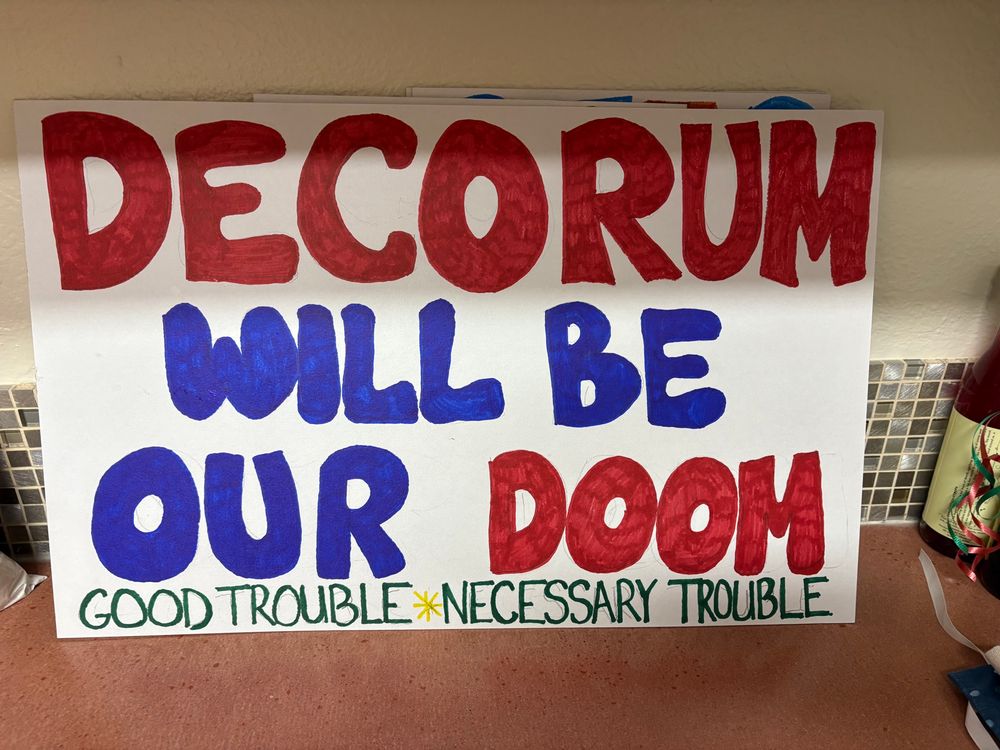 DECORUM
WILL BE
OUR DOOM
GOOD TROUBLE * NECESSARY TROUBLE